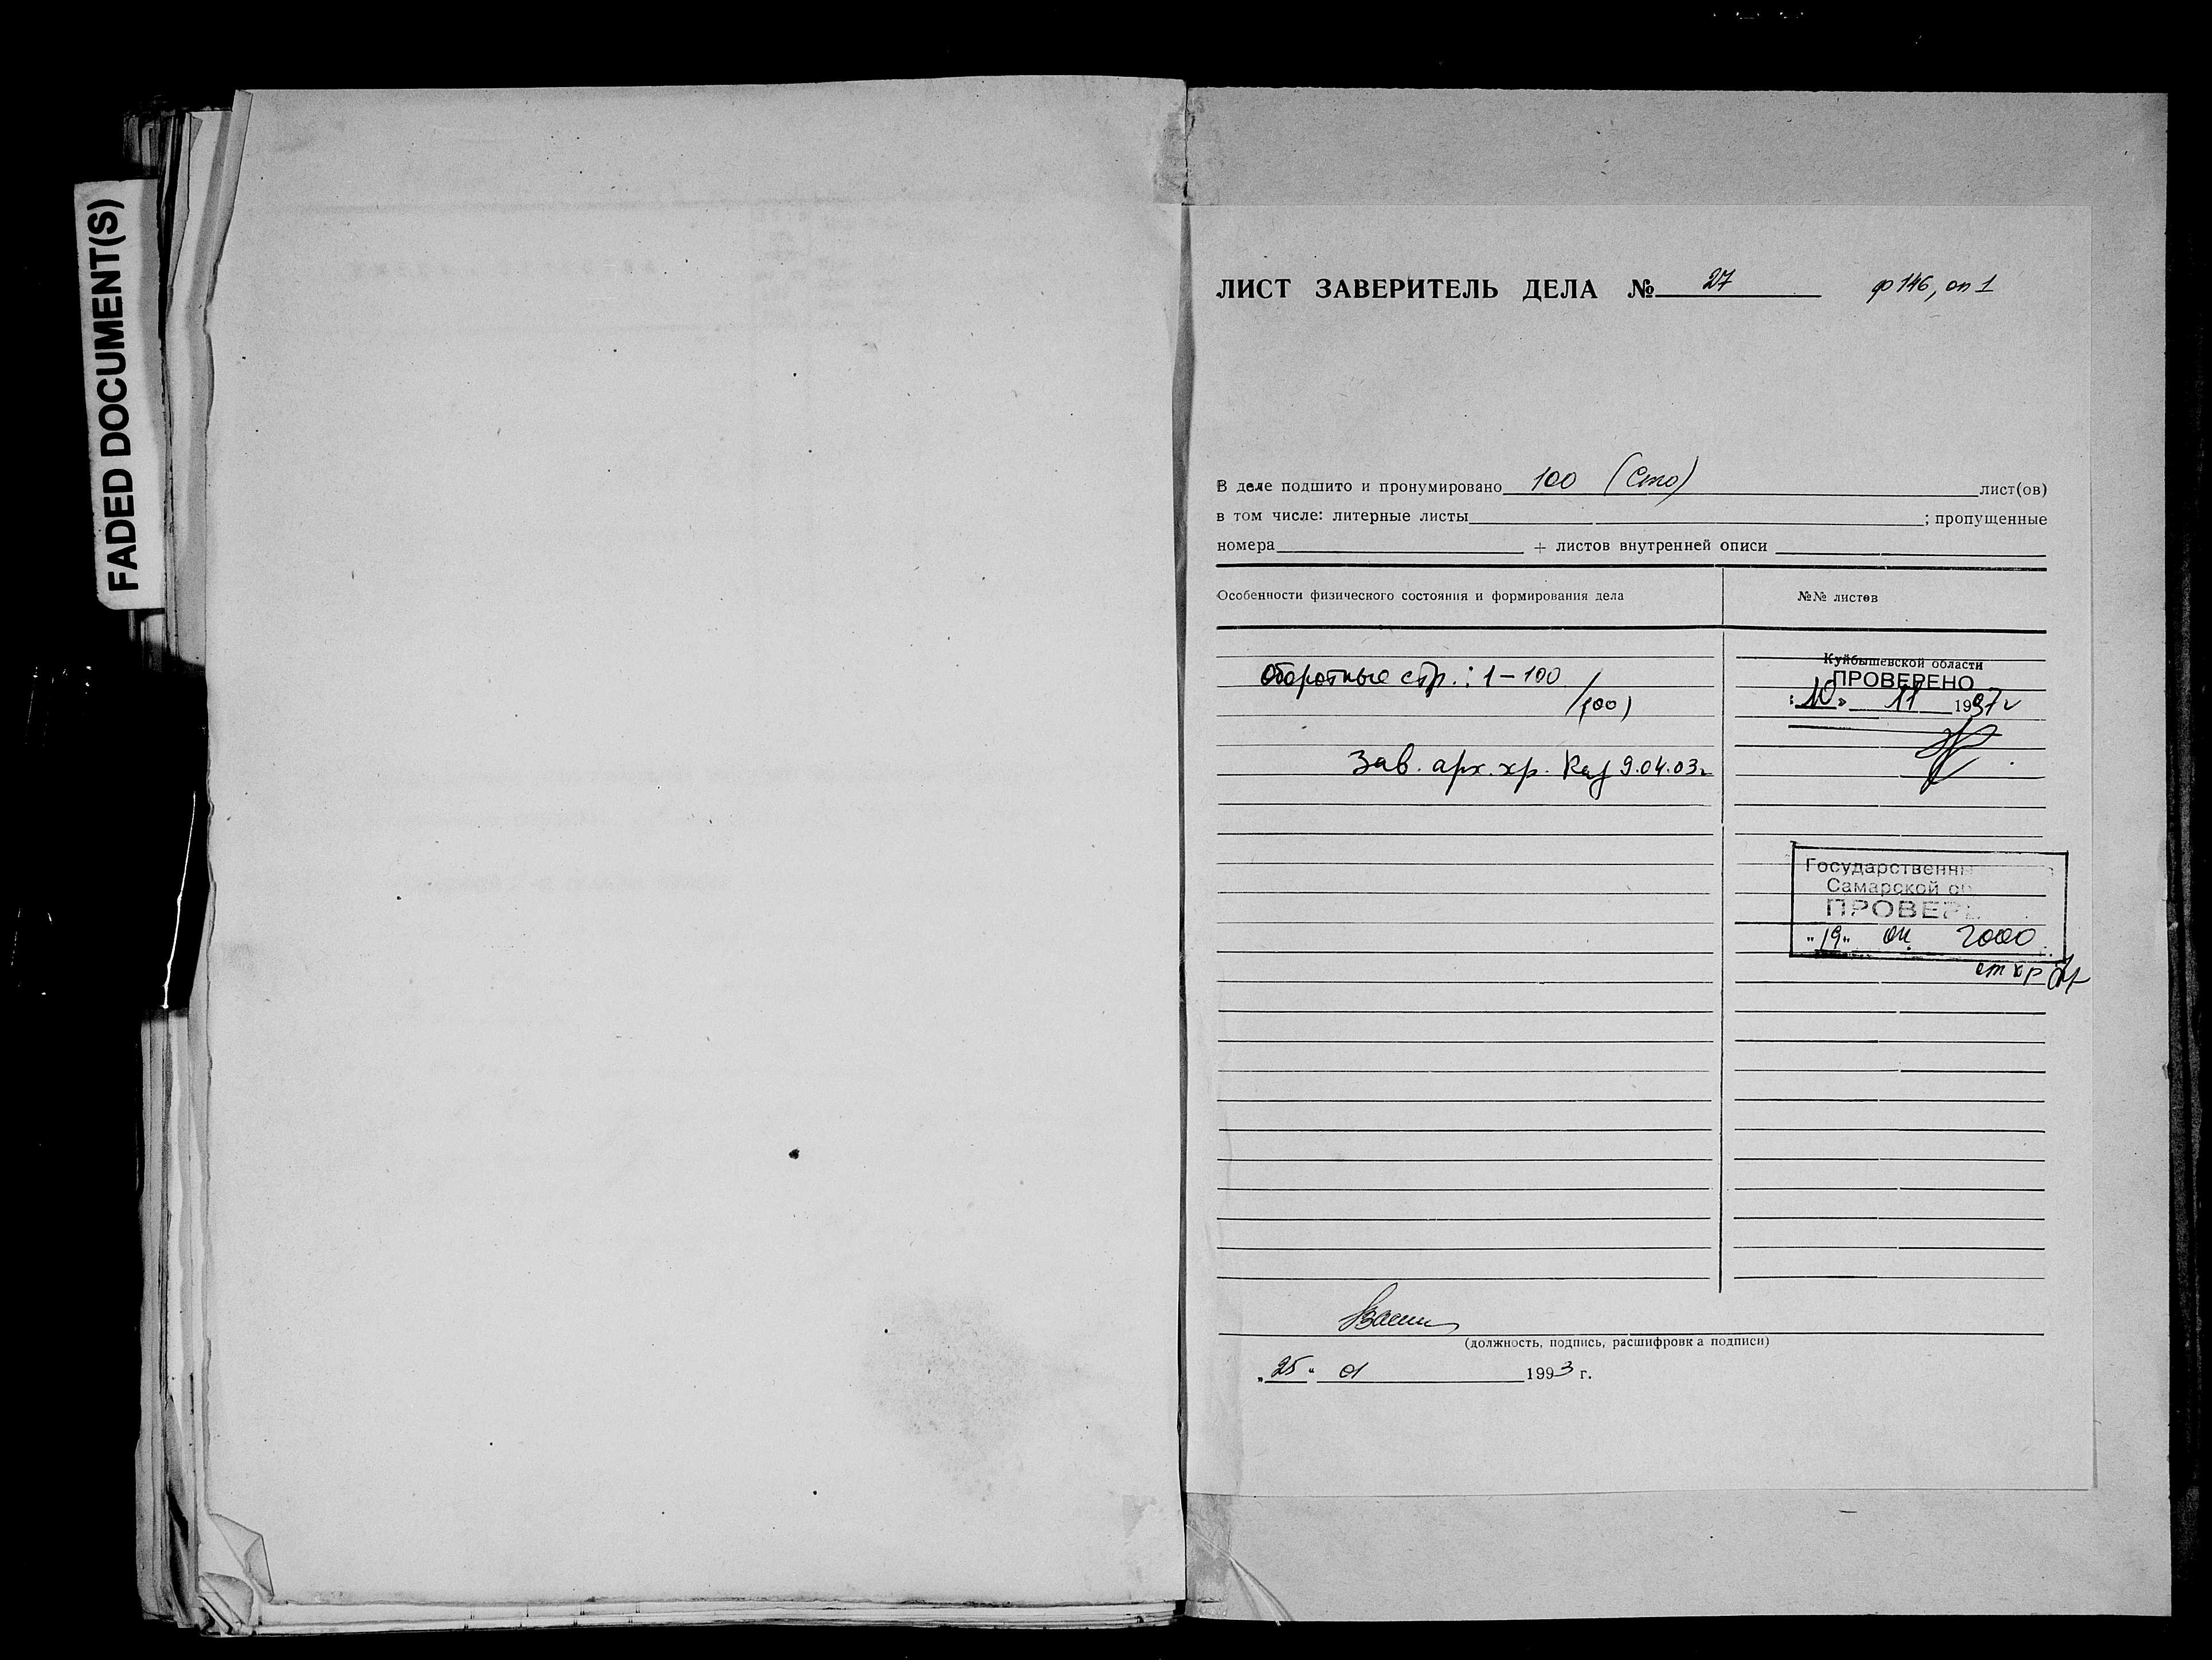 FADED DOCUMENT(S)
ЛИСТ ЗАВЕРИТЕЛЬ ДЕЛА № 27 ф 146, оп 1
В деле подшито и пронумировано 100 (Сто) лист(ов)
в том числе: литерные листы ; пропущенные
номера + листов внутренней описи
Особенности физического состояния и формирования дела №№ листов
Оборотные стр.: 1-100
/100/
Зав. арх. хр. 9.04.03г
Куйбышевской области
ПРОВЕРЕНО
"10" 11 1997г
Государственны
Самарской об
ПРОВЕРЕ
"19" 2000 г.
ст хр
(должность, подпись, расшифровка подписи)
"25" 01 1993 г.